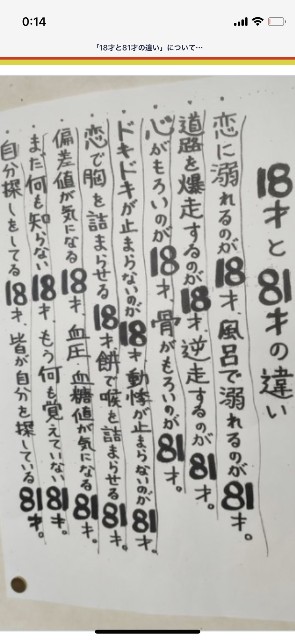 0:14
「18才と81才の違い」について…
18才と81才の違い
恋に溺れるのが18才、風呂で溺れるのが81才。
道路を爆走するのが18才、逆走するのが81才。
心がもろいのが18才、骨がもろいのが81才。
ドキドキが止まらないのが18才、動悸が止まらないのが81才。
恋で胸を詰まらせる18才、餅で喉を詰まらせる81才。
偏差値が気になる18才、血圧・血糖値が気になる81才。
まだ何も知らない18才、もう何も覚えていない81才。
自分探しをしてる18才、皆が自分を探している81才。